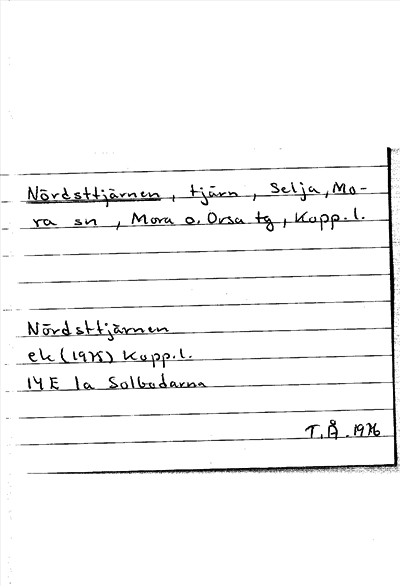 Nördsttjärnen, tjärn, Selja, Mo-
ra sn, Mora o. Orsa tg, Kopp. l.
Nördsttjärnen
ek (1975) Kopp. l.
14E 1a Solbodarna
T.Å. 1976